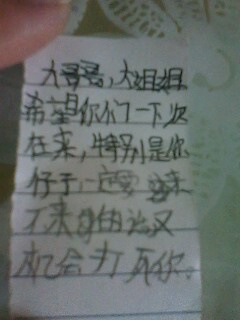 大哥哥,大姐姐
希望你们下一次
在来,特别是你
仔于一定 来
不来 没
机会打死你。